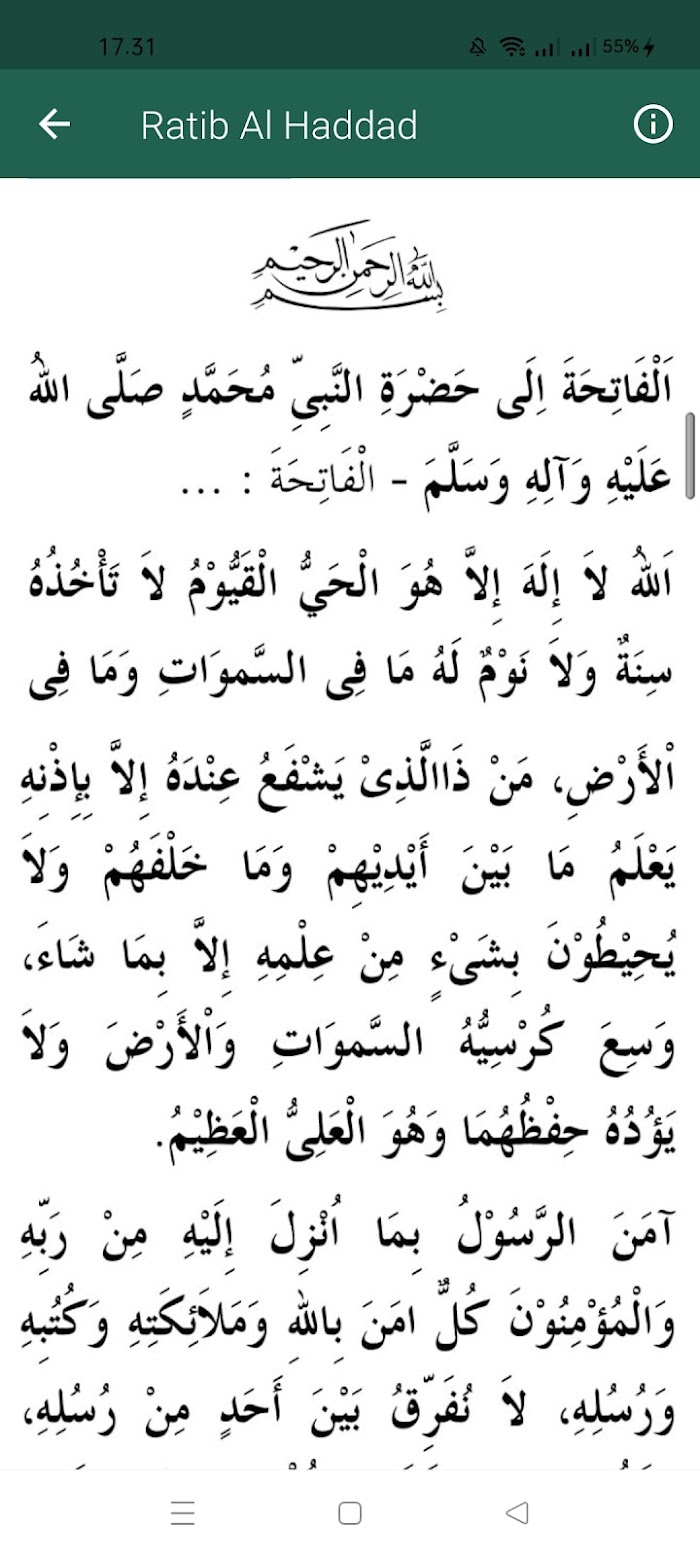 17.31
55%
Ratib Al Haddad
بِسْمِ اللهِ الرَّحْمٰنِ الرَّحِيْمِ
اَلْفَاتِحَةَ اِلَى حَضْرَةِ النَّبِيِّ مُحَمَّدٍ صَلَّى اللهُ
عَلَيْهِ وَآلِهِ وَسَلَّمَ - الْفَاتِحَةَ : ...
اَللهُ لاَ إِلَهَ إِلاَّ هُوَ الْحَيُّ الْقَيُّوْمُ لاَ تَأْخُذُهُ
سِنَةٌ وَلاَ نَوْمٌ لَهُ مَا فِى السَّموَاتِ وَمَا فِى
اْلأَرْضِ، مَنْ ذَاالَّذِىْ يَشْفَعُ عِنْدَهُ إِلاَّ بِإِذْنِهِ
يَعْلَمُ مَا بَيْنَ أَيْدِيْهِمْ وَمَا خَلْفَهُمْ وَلاَ
يُحِيْطُوْنَ بِشَىْءٍ مِنْ عِلْمِهِ إِلاَّ بِمَا شَاءَ،
وَسِعَ كُرْسِيُّهُ السَّموَاتِ وَاْلأَرْضَ وَلاَ
يَؤُدُهُ حِفْظُهُمَا وَهُوَ الْعَلِىُّ الْعَظِيْمُ.
آمَنَ الرَّسُوْلُ بِمَا اُنْزِلَ إِلَيْهِ مِنْ رَبِّهِ
وَالْمُؤْمِنُوْنَ كُلٌّ امَنَ بِاللهِ وَمَلاَئِكَتِهِ وَكُتُبِهِ
وَرُسُلِهِ، لاَ نُفَرِّقُ بَيْنَ أَحَدٍ مِنْ رُسُلِهِ،